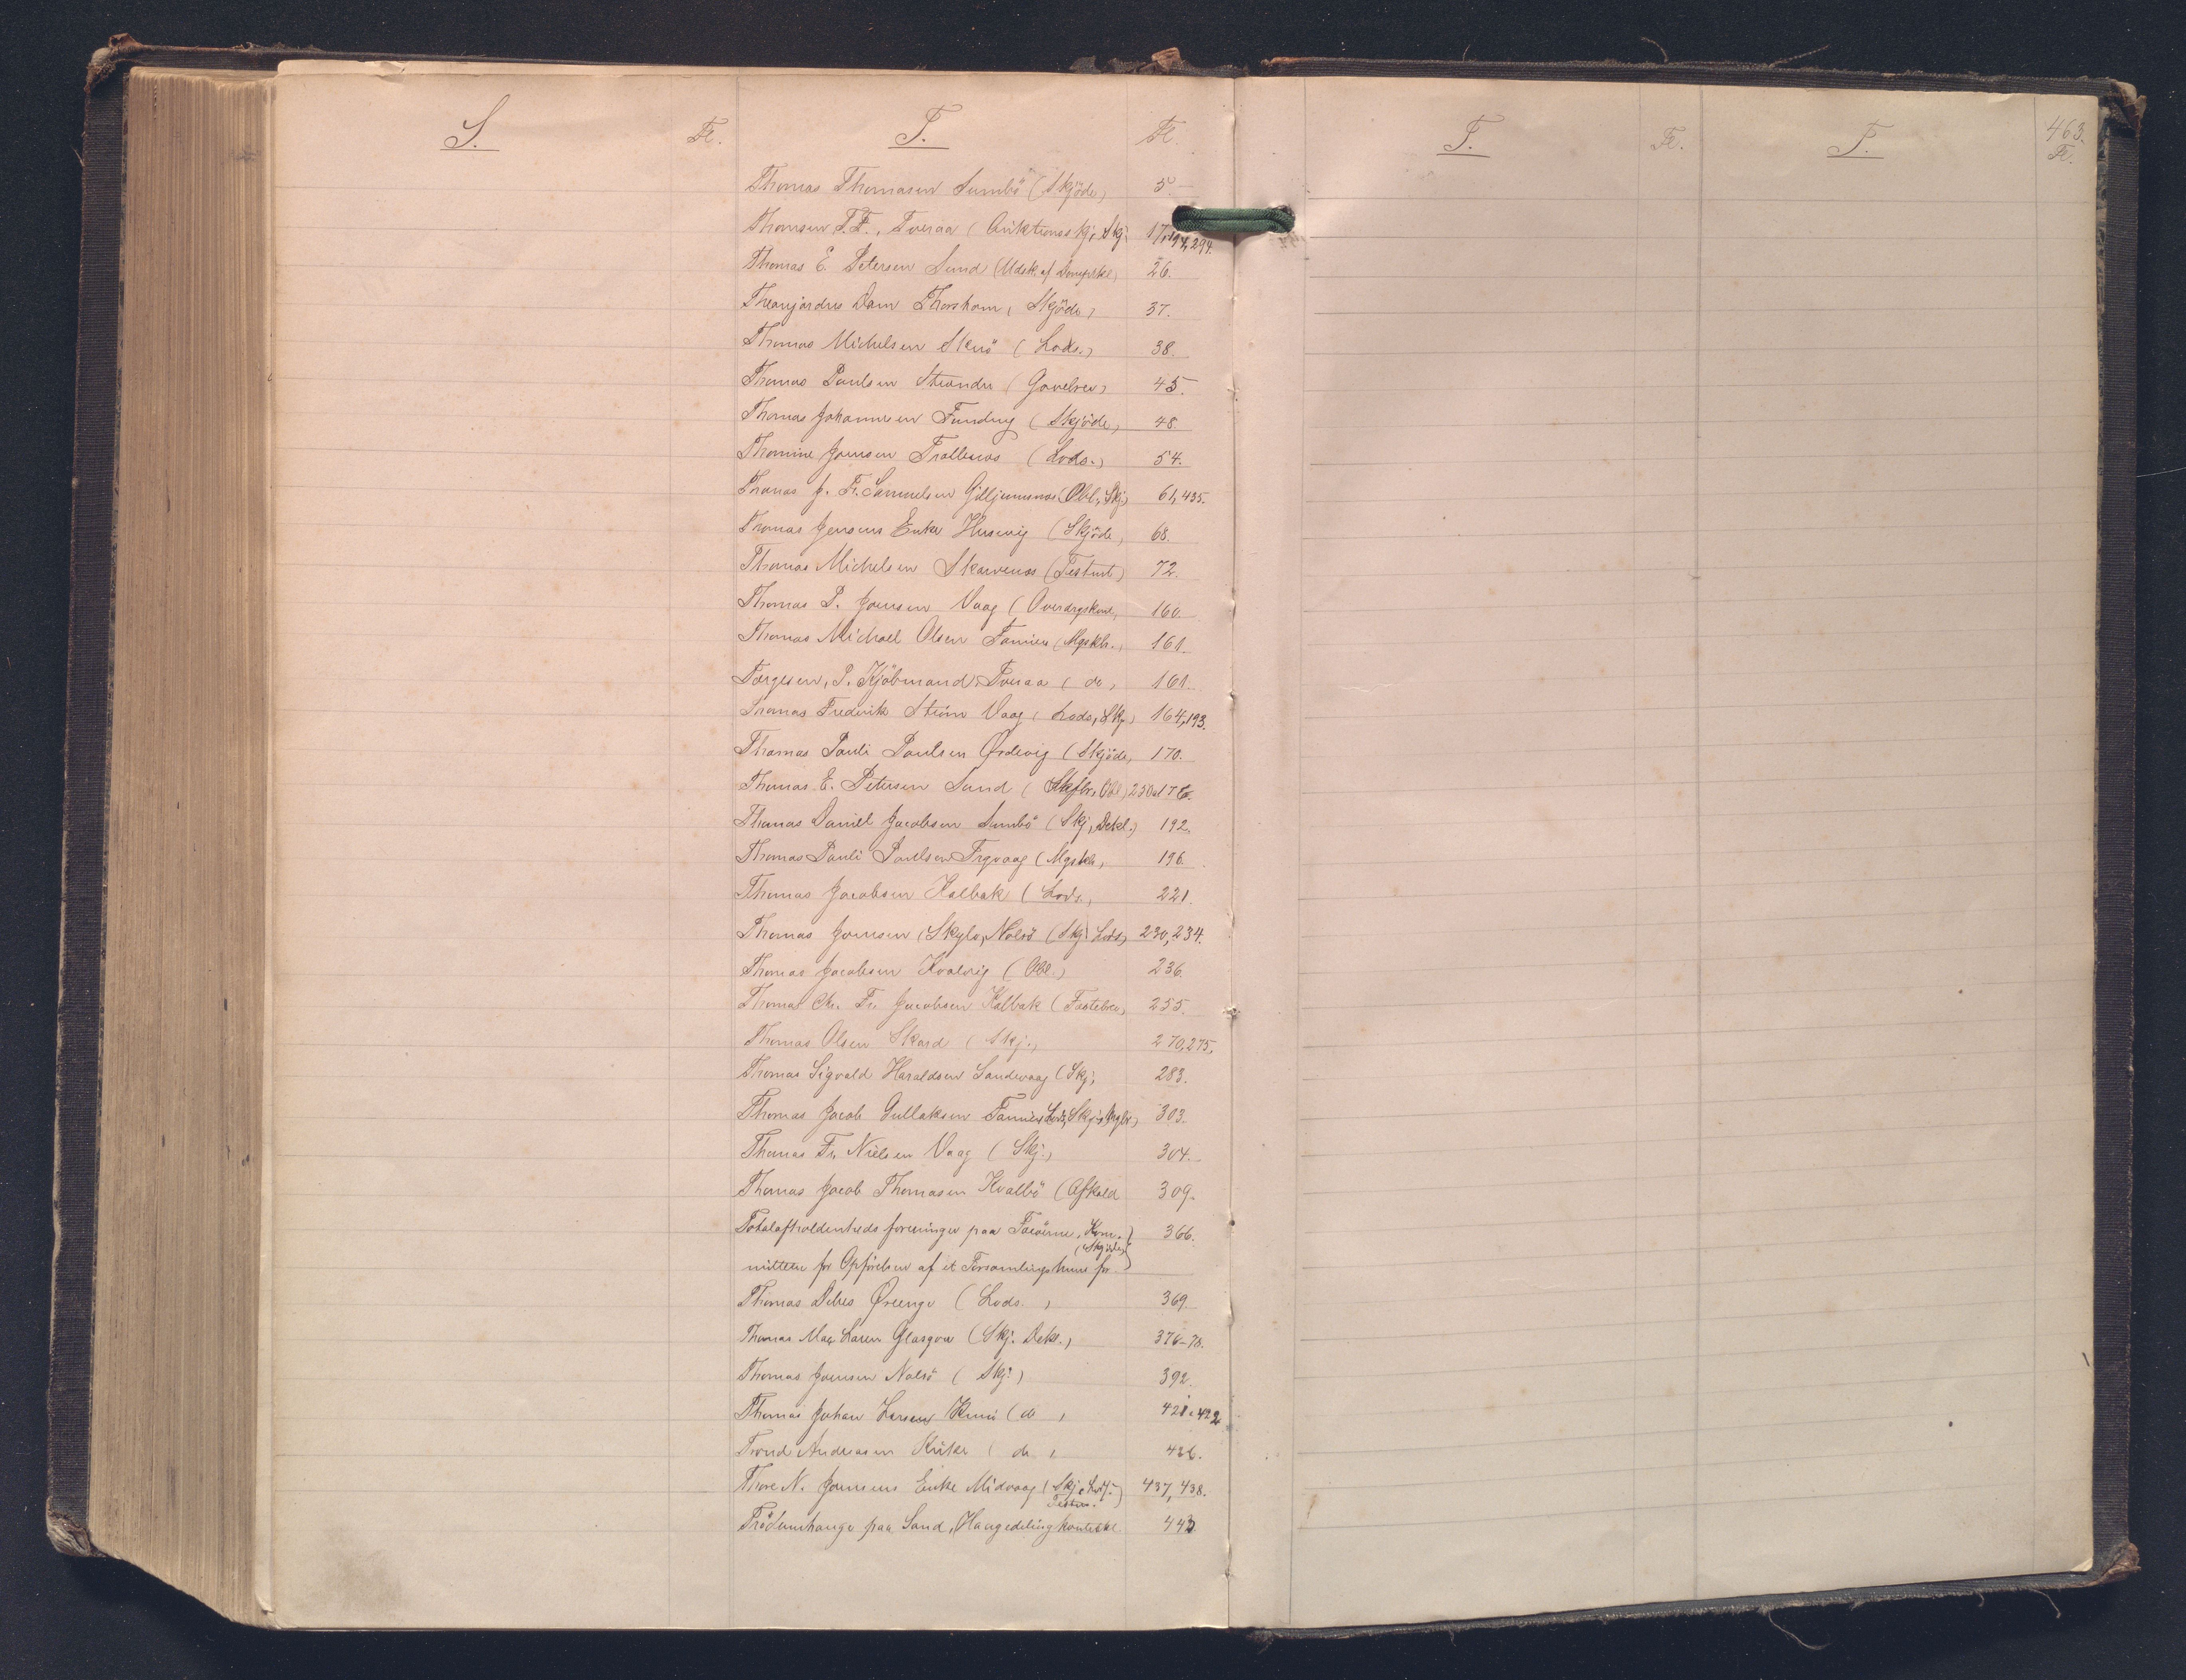 S. Fl. T. Fl.
Thomas Thomasen Sumbö (Skjöde) 5.
Thomsen T.F., Tveraa (Auktionsskj, Skj. 17, 194, 294.
Thomas E. Petersen Sand (Udsk. af 26.
Dam Thorshavn, Skjöde) 37.
Thomas Michelsen (Lods.) 38.
Thomas Poulsen Strander (Gavebrev) 45.
Thomas Johannesen Funding (Skjöde, 48.
Thomine Joensen Trallenæs (Lods.) 54.
Thomas J. Fr. Samuelsen (Obl., Skj.) 61, 435.
Thomas Jensens Enke Husevig (Skjöde, 68.
Thomas Michelsen Skarvenæs (Testmt) 72.
Thomas P. Joensen Vaag ( 160.
Thomas Michael Olsen Famien (Mgskh., 161.
Torgesen, P. Kjöbmand, Tveraa ( do, 161.
Thomas Fredrik Ström Vaag ( Lods, Skj.) 164, 193.
Thomas Pauli Poulsen Ørdevig (Skjöde, 170.
Thomas E. Petersen Sand ( Obl.) 250 176.
Thomas Daniel Jacobsen Sumbö (Skj, Dekl.) 192.
Thomas Pauli Poulsen (Mgskh, 196.
Thomas Jacobsen Kalbak ( Lods., 221.
Thomas Joensen (Skylv, Nolsö (Skj. Lods) 230, 234.
Thomas Jacobsen Hvalvig ( Obl.) 236.
Thomas Chr. Fr. Jacobsen Kalbak ( Fæstebrev) 255.
Thomas Olsen Skard ( Skj.) 270, 275.
Thomas Sigvald Haraldsen Sandevaag (Skj, 283.
Thomas Jacob Gullaksen Famien Lods, Skj. 303.
Thomas Fr. Nielsen Vaag ( Skj.) 304.
Thomas Jacob Thomasen Kvalbö (Afkald 309.
Totalafholdenheds foreninger paa Færöerne, Kom- 366.
(Skjöde)
mitteen for Opförelsen af et Forsamlingshuus for
Thomas Debes Øreenge ( Lods. ) 369.
Thomas Mac Laren Glasgow (Skj. Dekl.) 376-78.
Thomas Joensen Nolsö ( Skj.) 392.
Thomas Johan Larsen ( do ) 421. 422
Trond Andreasen ( do ) 426.
Thore N. Joensens Enke Midvaag ( Skj. ) 437, 438.
Testm.
paa Sand, 443
T. Fl. T. 463.
Fl.